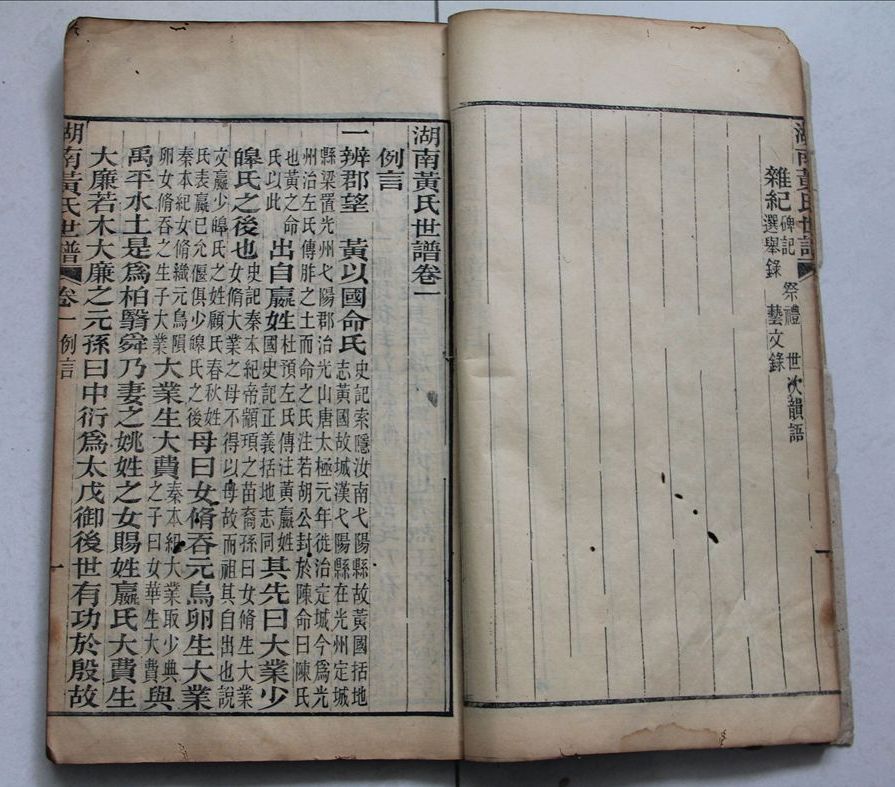 湖南黃氏世譜
雜紀 碑記 祭禮 世次韻語
選舉錄 藝文錄
湖南黃氏世譜卷一
例言
一辨郡望 黃以國命氏史記索隱汝南弋陽縣故黃國括地志黃國故城漢弋陽縣在光州定城
縣梁置光州弋陽郡治光山唐太極元年徙治定城今爲光州治左氏傳胙之土而命之氏注若胡公封於陳命曰陳氏
也黃之命氏以此出自嬴姓杜預左氏傳注黃嬴姓國史記正義括地志同其先曰大業少
皞氏之後也史記秦本紀帝顓頊之苗裔孫曰女脩生大業女脩大業之母不得以母故而祖其自出也說
文嬴少皞氏之姓顧氏春秋姓氏表嬴已允偃俱少皞氏之後母曰女脩吞元鳥卵生大業
秦本紀女脩織元鳥隕卵女脩吞之生子大業大業生大費秦本紀大業取少典之子曰女華生大費與
禹平水土是爲柏翳舜乃妻之姚姓之女賜姓嬴氏大費生
大廉若木大廉之元孫曰中衍爲太戊御後世有功於殷故
湖南黃氏世譜 卷一 例言 一